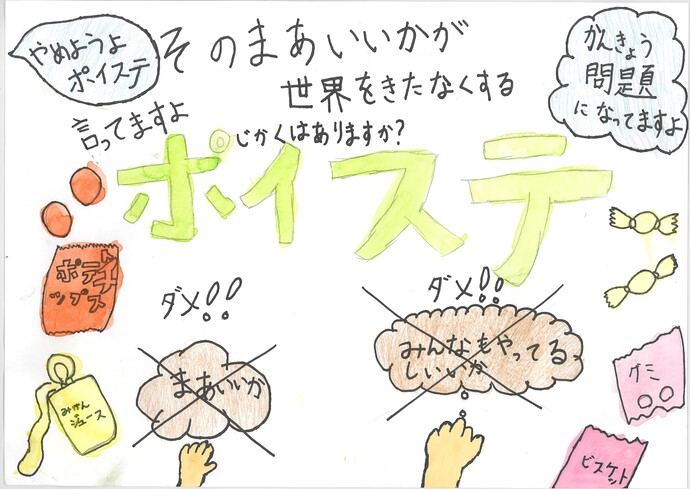 やめようよ
ポイステ
そのまあいいかが
世界をきたなくする
かんきょう
問題
になってますよ
言ってますよ
じかくはありますか?
ポイステ
ポテト
チップス
ダメ!!
ダメ!!
まあいいか
みんなもやってる
しいいか
みかん
ジュース
グミ
ビスケット